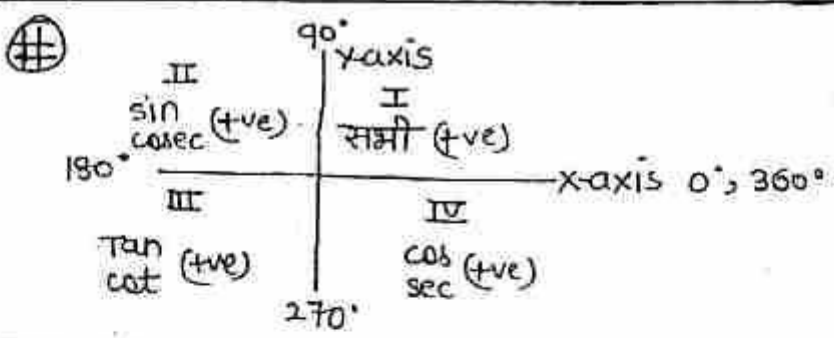 #
90°
Y-axis
II
sin
cosec (+ve)
I
सभी (+ve)
180°
X-axis 0°, 360°
III
Tan
cot (+ve)
IV
cos
sec (+ve)
270°